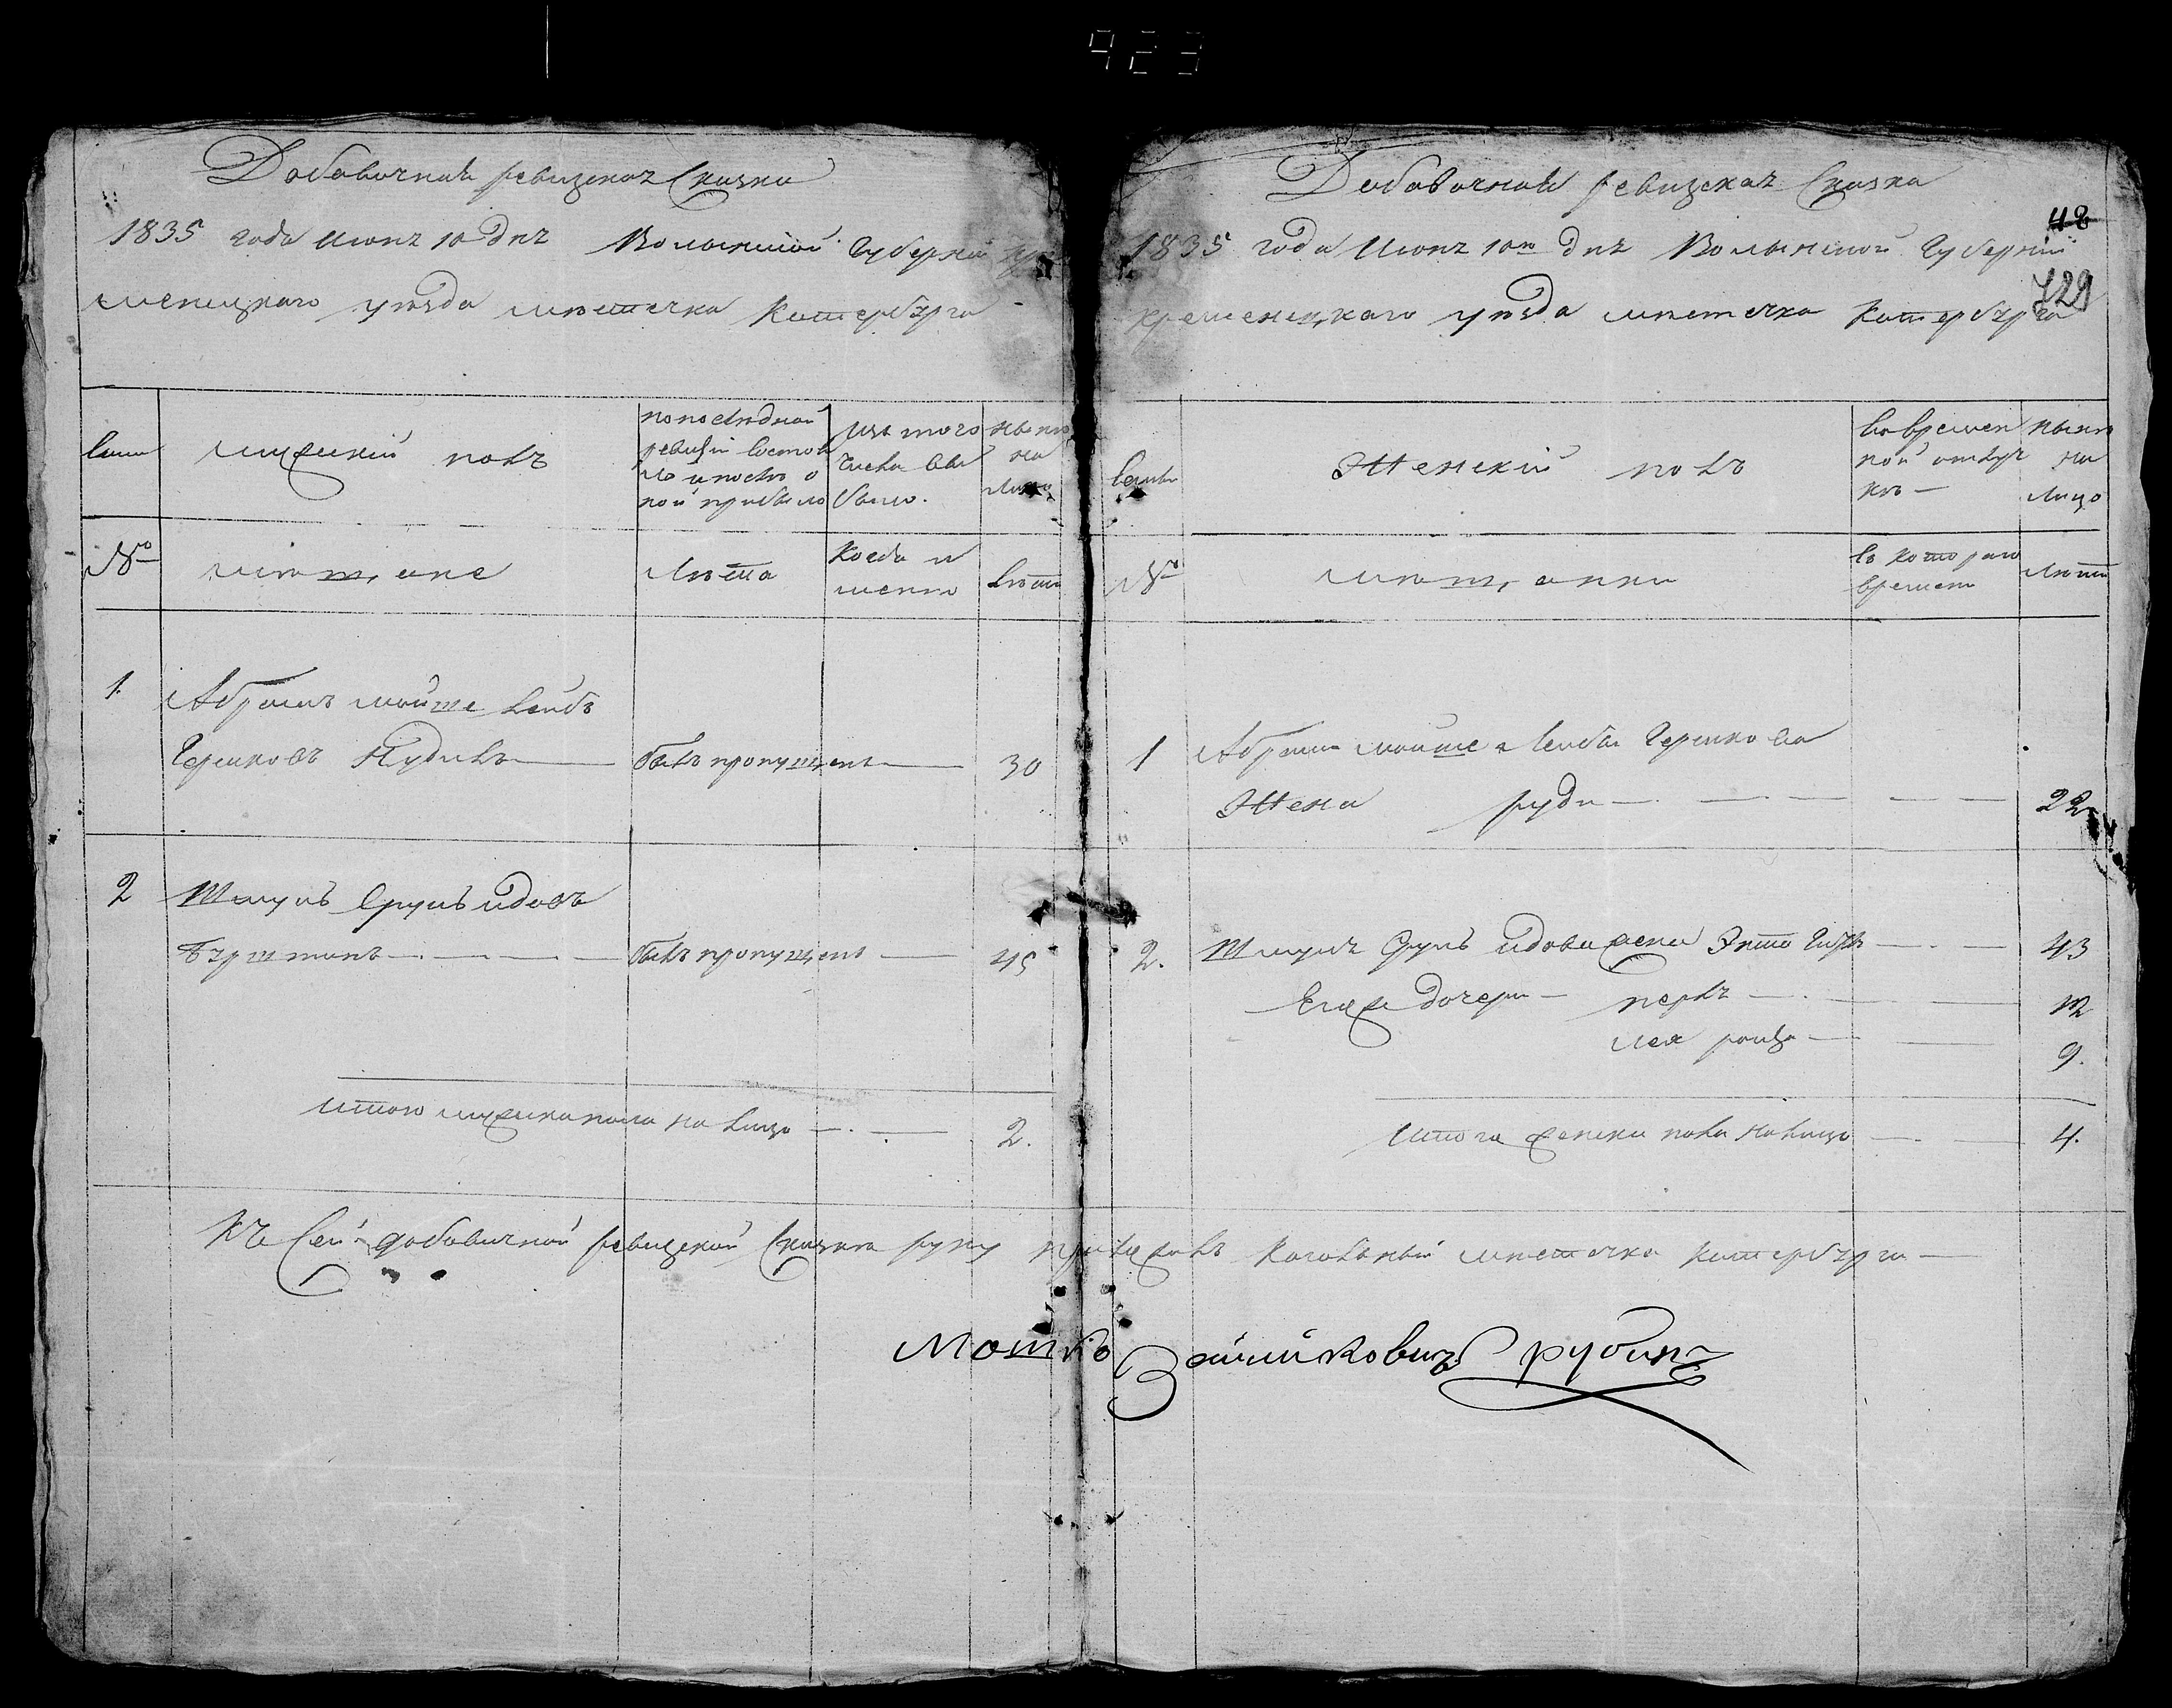 423
Добавочная ревизская Сказка
1835 года Июня 10 дня Волынской Губернии Кре
менецкаго уезда местечка Катербурга
Семьи
мужеский полъ
по последней
ревизии состоя
ло и после о
ной прибыло
Изъ того
числа вы
было.
ныне
на
Лицо
№
мещане
Лета
Когда и
менно
Лета
1.
Абрамъ Мойше Лейбъ
Гершковъ Нудель
былъ пропущенъ
30
2
Шмуль Сруль Идовъ
Бурштанъ
былъ пропущенъ
45
Итого мужеска пола на лицо
2.
Добавочная ревизская Сказка
48
1835 года Июня 10го дня Волынской Губернии
729
Кременецкаго уезда местечка Катербурга
Семьи
Женский полъ
Во времен
ной отлуч
ке
ныне
на
Лицо
№
мещанки
Съ котораго
времени
Лета
1
Абрама Мойше Лейбы Гершкова
Жена Руда
22
2.
Шмуля Сруль Идова жена Эта
43
Егож дочери Перль
12
Лея
9.
Итого женска пола на лицо
4.
Къ Сей добавочной ревизской Сказке руку приложилъ Кагальный местечка Катербурга
Мошко Зейликовичъ Рубинъ